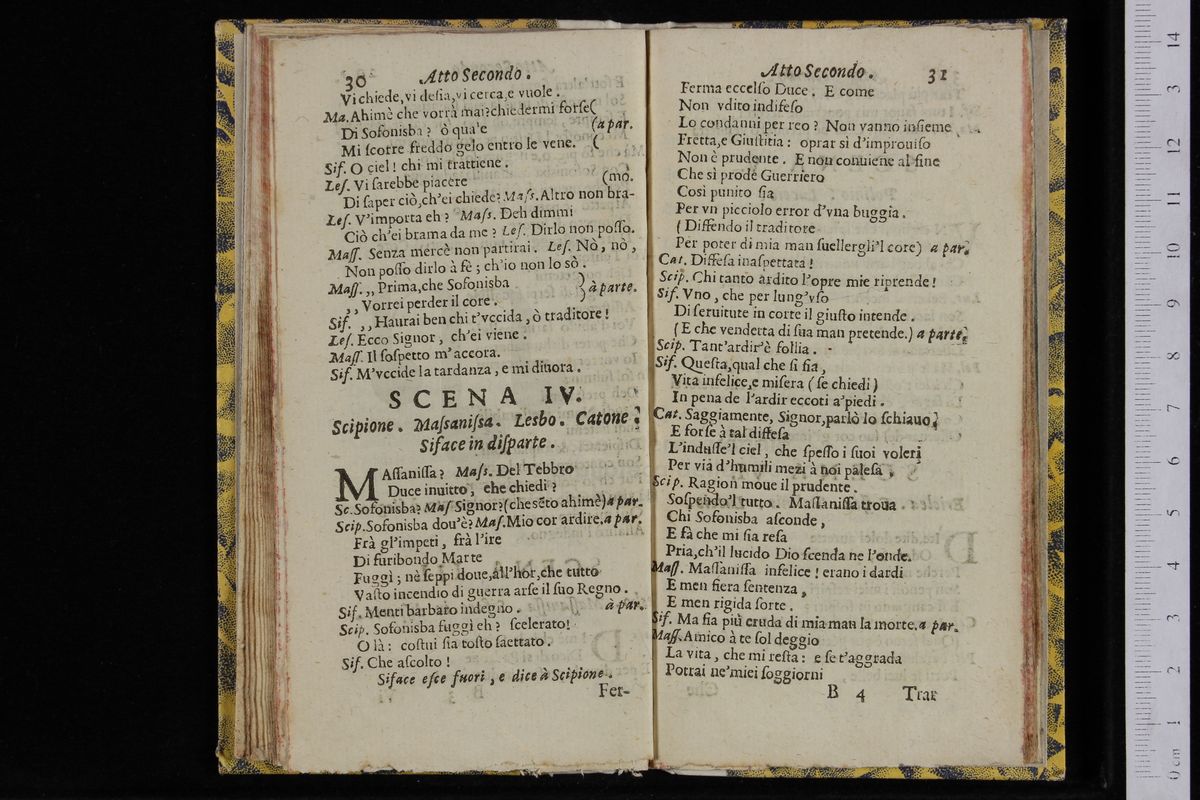 30 Atto Secondo.
Vi chiede, vi desia, vi cerca, e vuole.
Ma. Ahimè che vorrà mai? chiedermi forse(
Di Sofonisba? ò qua'e (a par.
Mi scorre freddo gelo entro le vene. (
Sif. O ciel! chi mi trattiene.
Les. Vi sarebbe piacere (mo.
Di saper ciò, ch'ei chiede? Mass. Altro non bra-
Les. V'importa eh? Mass. Deh dimmi
Ciò ch'ei brama da me? Les. Dirlo non posso.
Mass. Senza mercè non partirai. Les. Nò, nò,
Non posso dirlo à fè; ch'io non lo sò.
Mass. ,,Prima, che Sofonisba } à parte.
,,Vorrei perder il core.
Sif. ,,Haurai ben chi t'vccida, ò traditore!
Les. Ecco Signor, ch'ei viene.
Mass. Il sospetto m'accora.
Sif. M'vccide la tardanza, e mi diuora.
SCENA IV.
Scipione. Massanissa. Lesbo. Catone.
Siface in disparte.
MAssanissa? Mass. Del Tebbro
Duce inuitto, che chiedi?
Sc. Sofonisba? Mass Signor? (che sẽto ahimè) a par.
Scip. Sofonisba dou'è? Mas. Mio cor ardire. a par.
Frà gl'impeti, frà l'ire
Di furibondo Marte
Fuggì; nè seppi doue, all'hor, che tutto
Vasto incendio di guerra arse il suo Regno.
Sif. Menti barbaro indegno. à par.
Scip. Sofonisba fuggì eh? scelerato!
O là: costui sia tosto saettato.
Sif. Che ascolto!
Siface esce fuori, e dice à Scipione.
Fer-
Atto Secondo. 31
Ferma eccelso Duce. E come
Non vdito indifeso
Lo condanni per reo? Non vanno insieme
Fretta, e Giustitia: oprar sì d'improuiso
Non è prudente. E non conuiene al fine
Che sì prode Guerriero
Così punito sia
Per vn picciolo error d'vna buggia.
(Diffendo il traditore
Per poter di mia man suellergli'l core) a par.
Cat. Diffesa inaspettata!
Scip. Chi tanto ardito l'opre mie riprende!
Sif. Vno, che per lung'vso
Di seruitute in corte il giusto intende.
(E che vendetta di sua man pretende.) a parte.
Scip. Tant'ardir'è follia.
Sif. Questa, qual che si sia,
Vita infelice, e misera (se chiedi)
In pena de l'ardir eccoti a'piedi.
Cat. Saggiamente, Signor, parlò lo schiauo,
E forse à tal diffesa
L'indusse'l ciel, che spesso i suoi voleri
Per via d'humili mezi à noi palesa.
Scip. Ragion moue il prudente.
Sospendo'l tutto. Massanissa troua
Chi Sofonisba asconde,
E fà che mi sia resa
Pria, ch'il lucido Dio scenda ne l'onde.
Mass. Massanissa infelice! erano i dardi
E men fiera sentenza,
E men rigida sorte.
Sif. Ma sia più cruda di mia man la morte. a par.
Mass. Amico à te sol deggio
La vita, che mi resta: e se t'aggrada
Potrai ne'miei soggiorni
B 4 Trar